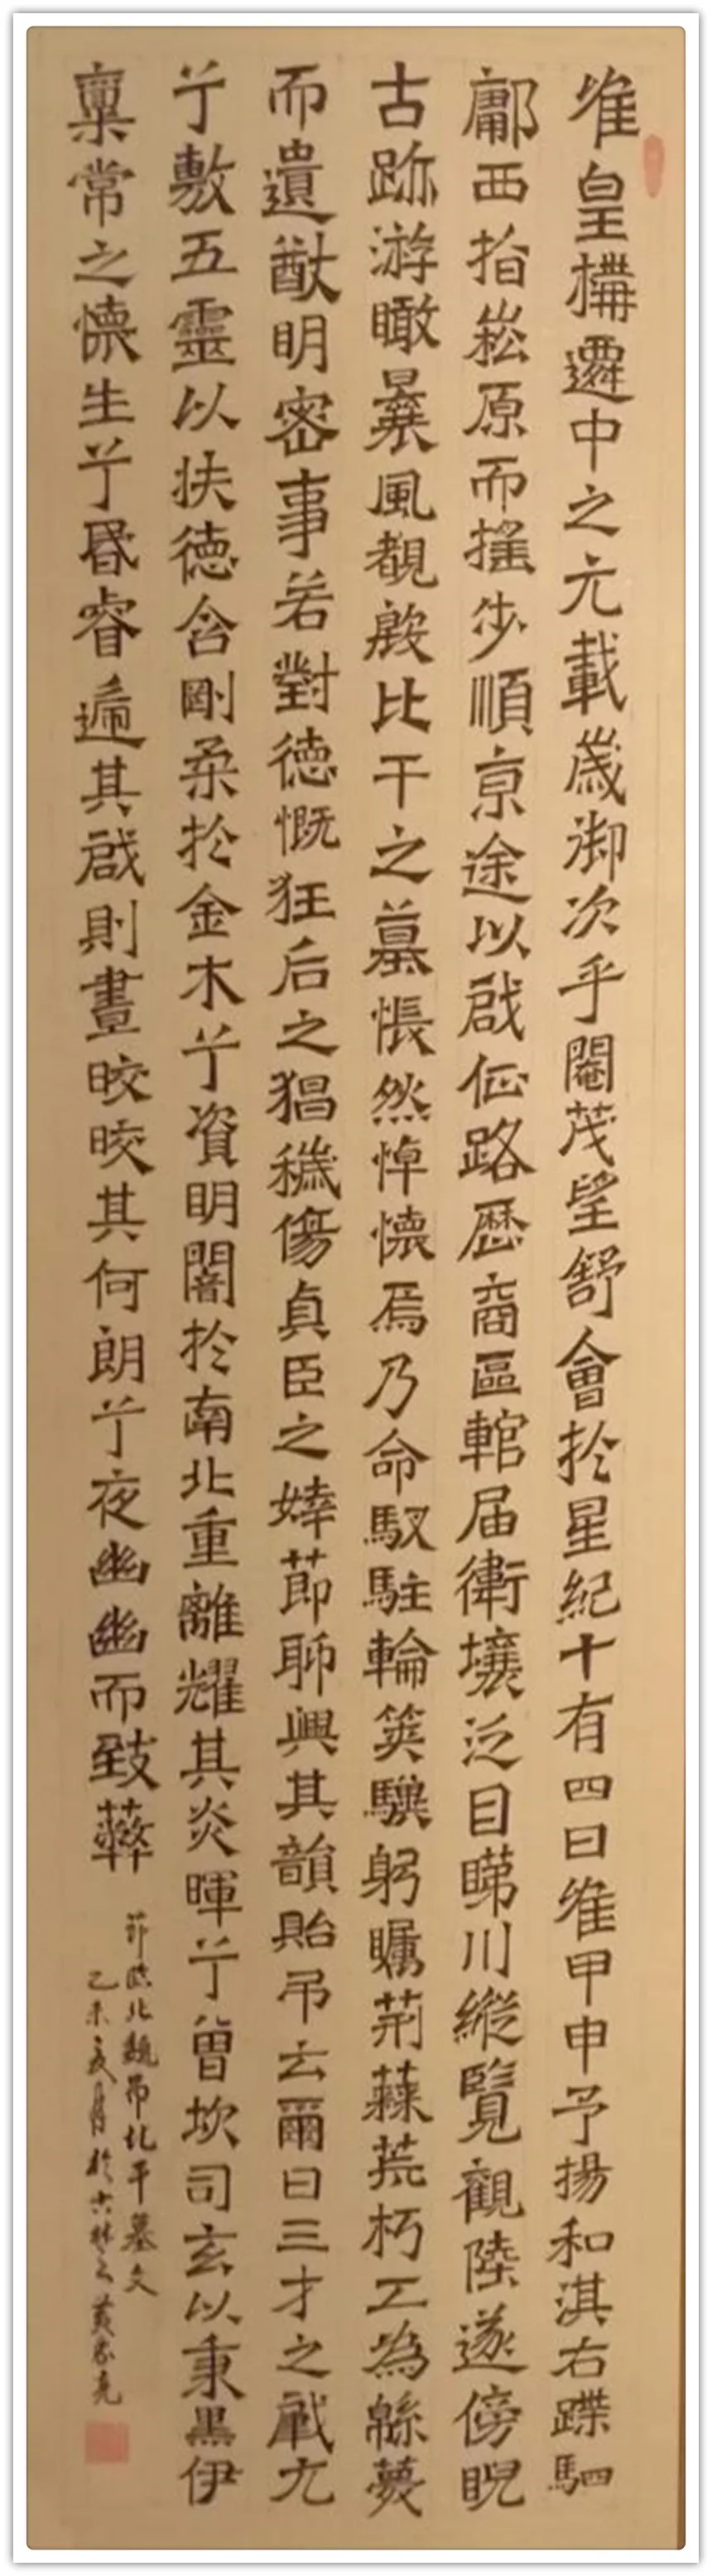 唯皇構遷中之元載歲御次乎閹茂望舒會於星紀十有四日唯甲申予揚和淇右蹀駟
鄘西指崧原而搖步順京途以啟征路歷商區輨届衛壤泛目睇川縱覽觀陸遂傍睨
古跡游瞰曩風覩殷比干之墓悵然悼懷焉乃命馭駐輪策驥躬矚荊蕀荒朽工為緜蔑
而遺猷明密事若對德慨狂后之猖穢傷貞臣之婞節聊興其韻貽吊云爾曰三才之肈元
兮敷五靈以扶德含剛柔於金木兮資明闇於南北重離耀其炎暉兮曾坎司玄以秉黑伊
稟常之懷生兮昏睿遞其啟則晝皎皎其何朗兮夜幽幽而致蔽
節臨北魏吊比干墓文
乙未